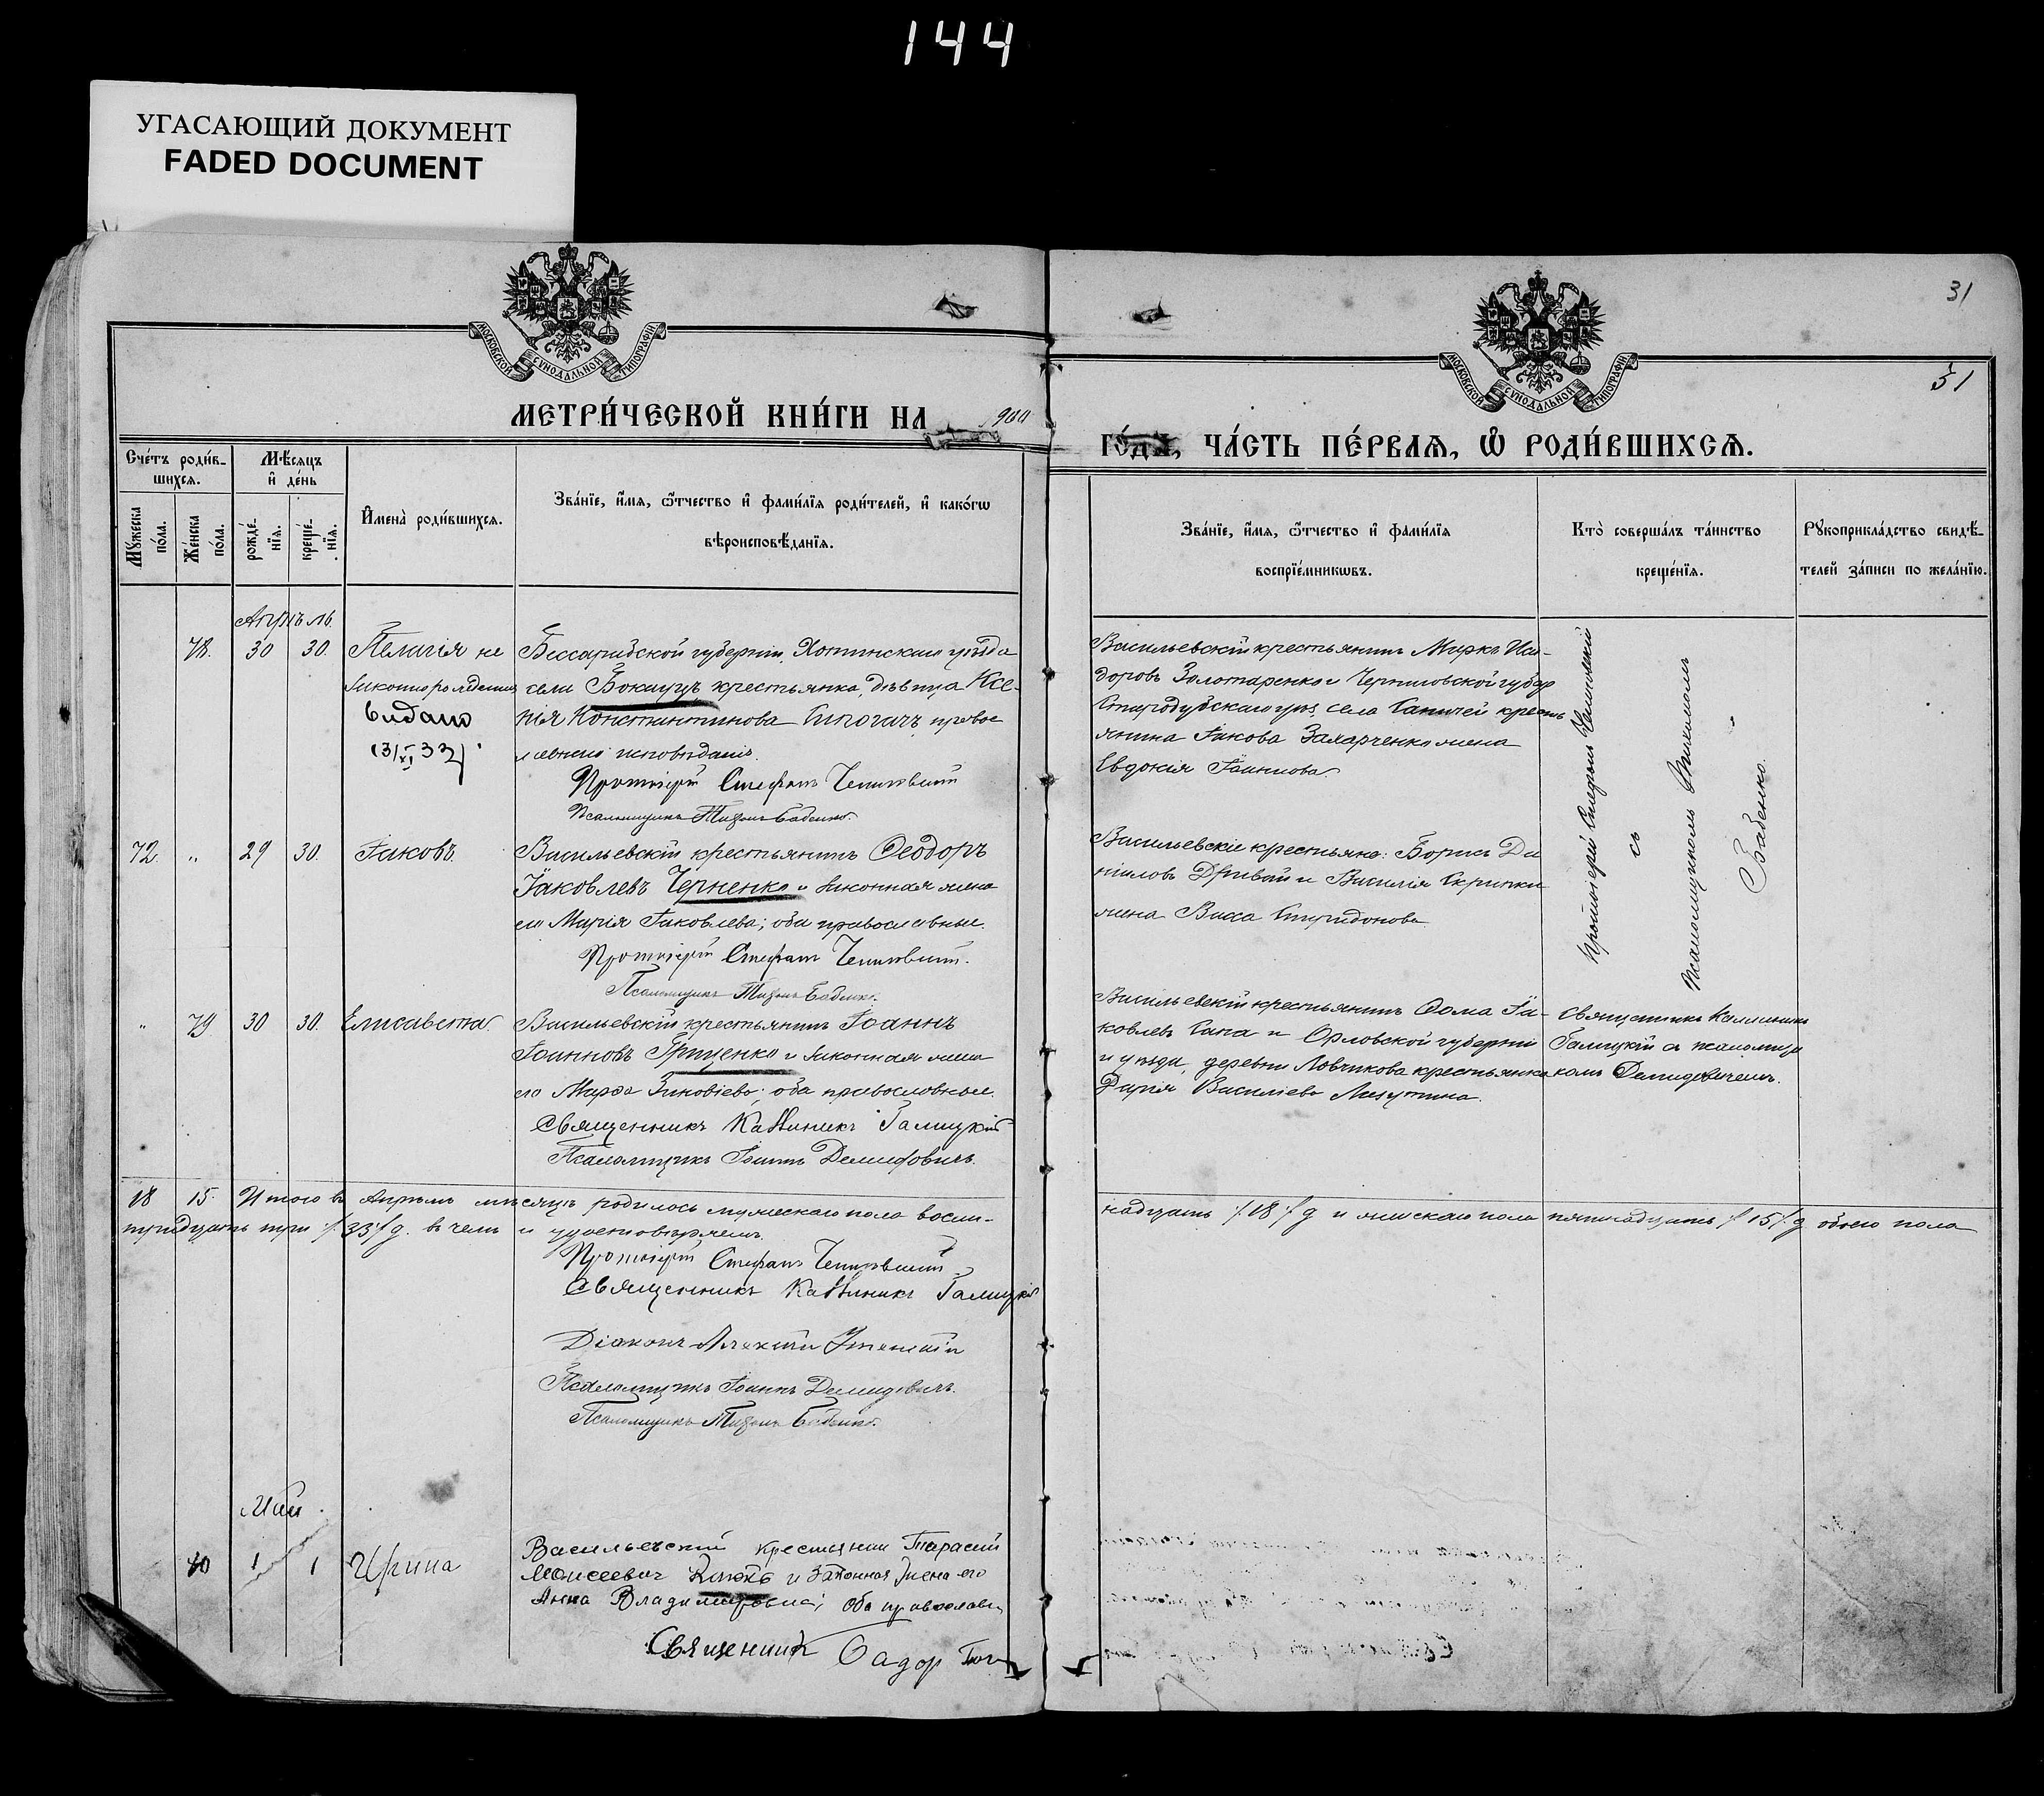 144
УГАСАЮЩИЙ ДОКУМЕНТ
FADED DOCUMENT
31
МОСКОВСКОЙ СѴНОДАЛЬНОЙ ТИПОГРАФІИ
МОСКОВСКОЙ СѴНОДАЛЬНОЙ ТИПОГРАФІИ
31
МЕТРИ́ЧЕСКОЙ КНИ́ГИ НА 900
ГО́ДЪ, ЧА́СТЬ ПЕ́РВАЯ, Ѡ РОДИ́ВШИХСЯ.
Сче́тъ роди́в-
шихся.
Мѣ́сяцъ
и҆ де́нь
Мꙋ́жеска
по́ла.
Же́нска
по́ла.
рожде́-
нїя.
креще́-
нїя.
И҆мена̀ роди́вшихся.
Зва́нїе, и҆́мя, ѻ҆́тчество и҆ фами́лїя роди́телей, и҆ како́гѡ
вѣроисповѣ́данїя.
Зва́нїе, и҆́мя, ѻ҆́тчество и҆ фами́лїя
воспрїе́мникѡвъ.
Кто̀ соверша́лъ та́инство
креще́нїя.
Рꙋкоприкла́дство свидѣ́-
телей за́писи по жела́нїю.
Апрѣль.
78. 30 30. Пелагія не
законнорожденная
видано
Бессарабской губерніи, Хотинскаго уѣзда
села крестьянка, дѣвица Ксе-
нія Константинова право
славнаго исповѣданія.
Протоіерей Стефанъ
Псаломщикъ Тихонъ Бабенко.
Васильевскій крестьянинъ Маркъ Иси-
доровъ Золотаренко и Черниговской губер
Стародубскаго уѣз, села кресть
янина Іакова Захарченко жена
Евдокія Іоаннова.
Протоіерей Стефанъ
съ
псаломщикомъ
Бабенко.
72. " 29 30. Іаковъ.
Васильевскій крестьянинъ Ѳеодоръ
Іаковлевъ Черненко и законная жена
его Марія Іаковлева; оба православные.
Протоіерей Стефанъ
Псаломщикъ Тихонъ Бабенко.
Васильевскіе крестьяне: Борисъ Да
ніиловъ и Василія Скрипки
жена Васса Спиридонова
" 79 30 30. Елисавета.
Васильевскій крестьянинъ Іоаннъ
Іоанновъ Гриценко и законная жена
его Марѳа Зиновіева; оба православные.
Священникъ Каллиникъ Галицкій
Псаломщикъ Іоаннъ Демидовичъ.
Васильевскій крестьянинъ Ѳома Іа-
ковлевъ Сапа и Орловской губерніи
и уѣзда, деревни Ловчикова крестьянка
Дарія Василіева
Священникъ Каллиникъ
Галицкій съ псаломщи
комъ Демидовичемъ.
18 15. Итого въ Апрѣлѣ мѣсяцѣ родилось мужескаго пола восем-
надцать /18/ д и женскаго пола пятнадцать /15/ д обоего пола
тридцать три /33/ д. въ чемъ и удостовѣряемъ.
Протоіерей Стефанъ
Священникъ Каллиникъ Галицкій
Діаконъ Алексій
Псаломщикъ Іоаннъ Демидовичъ.
Псаломщикъ Тихонъ Бабенко.
Май
1 1 Ирина
Васильевскій крестьянин Тарасий
Моисеевич и законная жена его
Анна Владимировна; оба православн
Священник